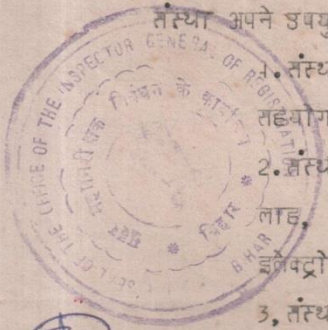 संस्था अपने उपयु
1. संस्थ
सहयोग
2. संस्थ
लाह,
इलेक्ट्रो
3, संस्थ
SEAL OF THE OFFICE OF THE INSPECTOR GENERAL OF REGISTRATI
BIHAR
निबंधन के कार्यालय
बिहार